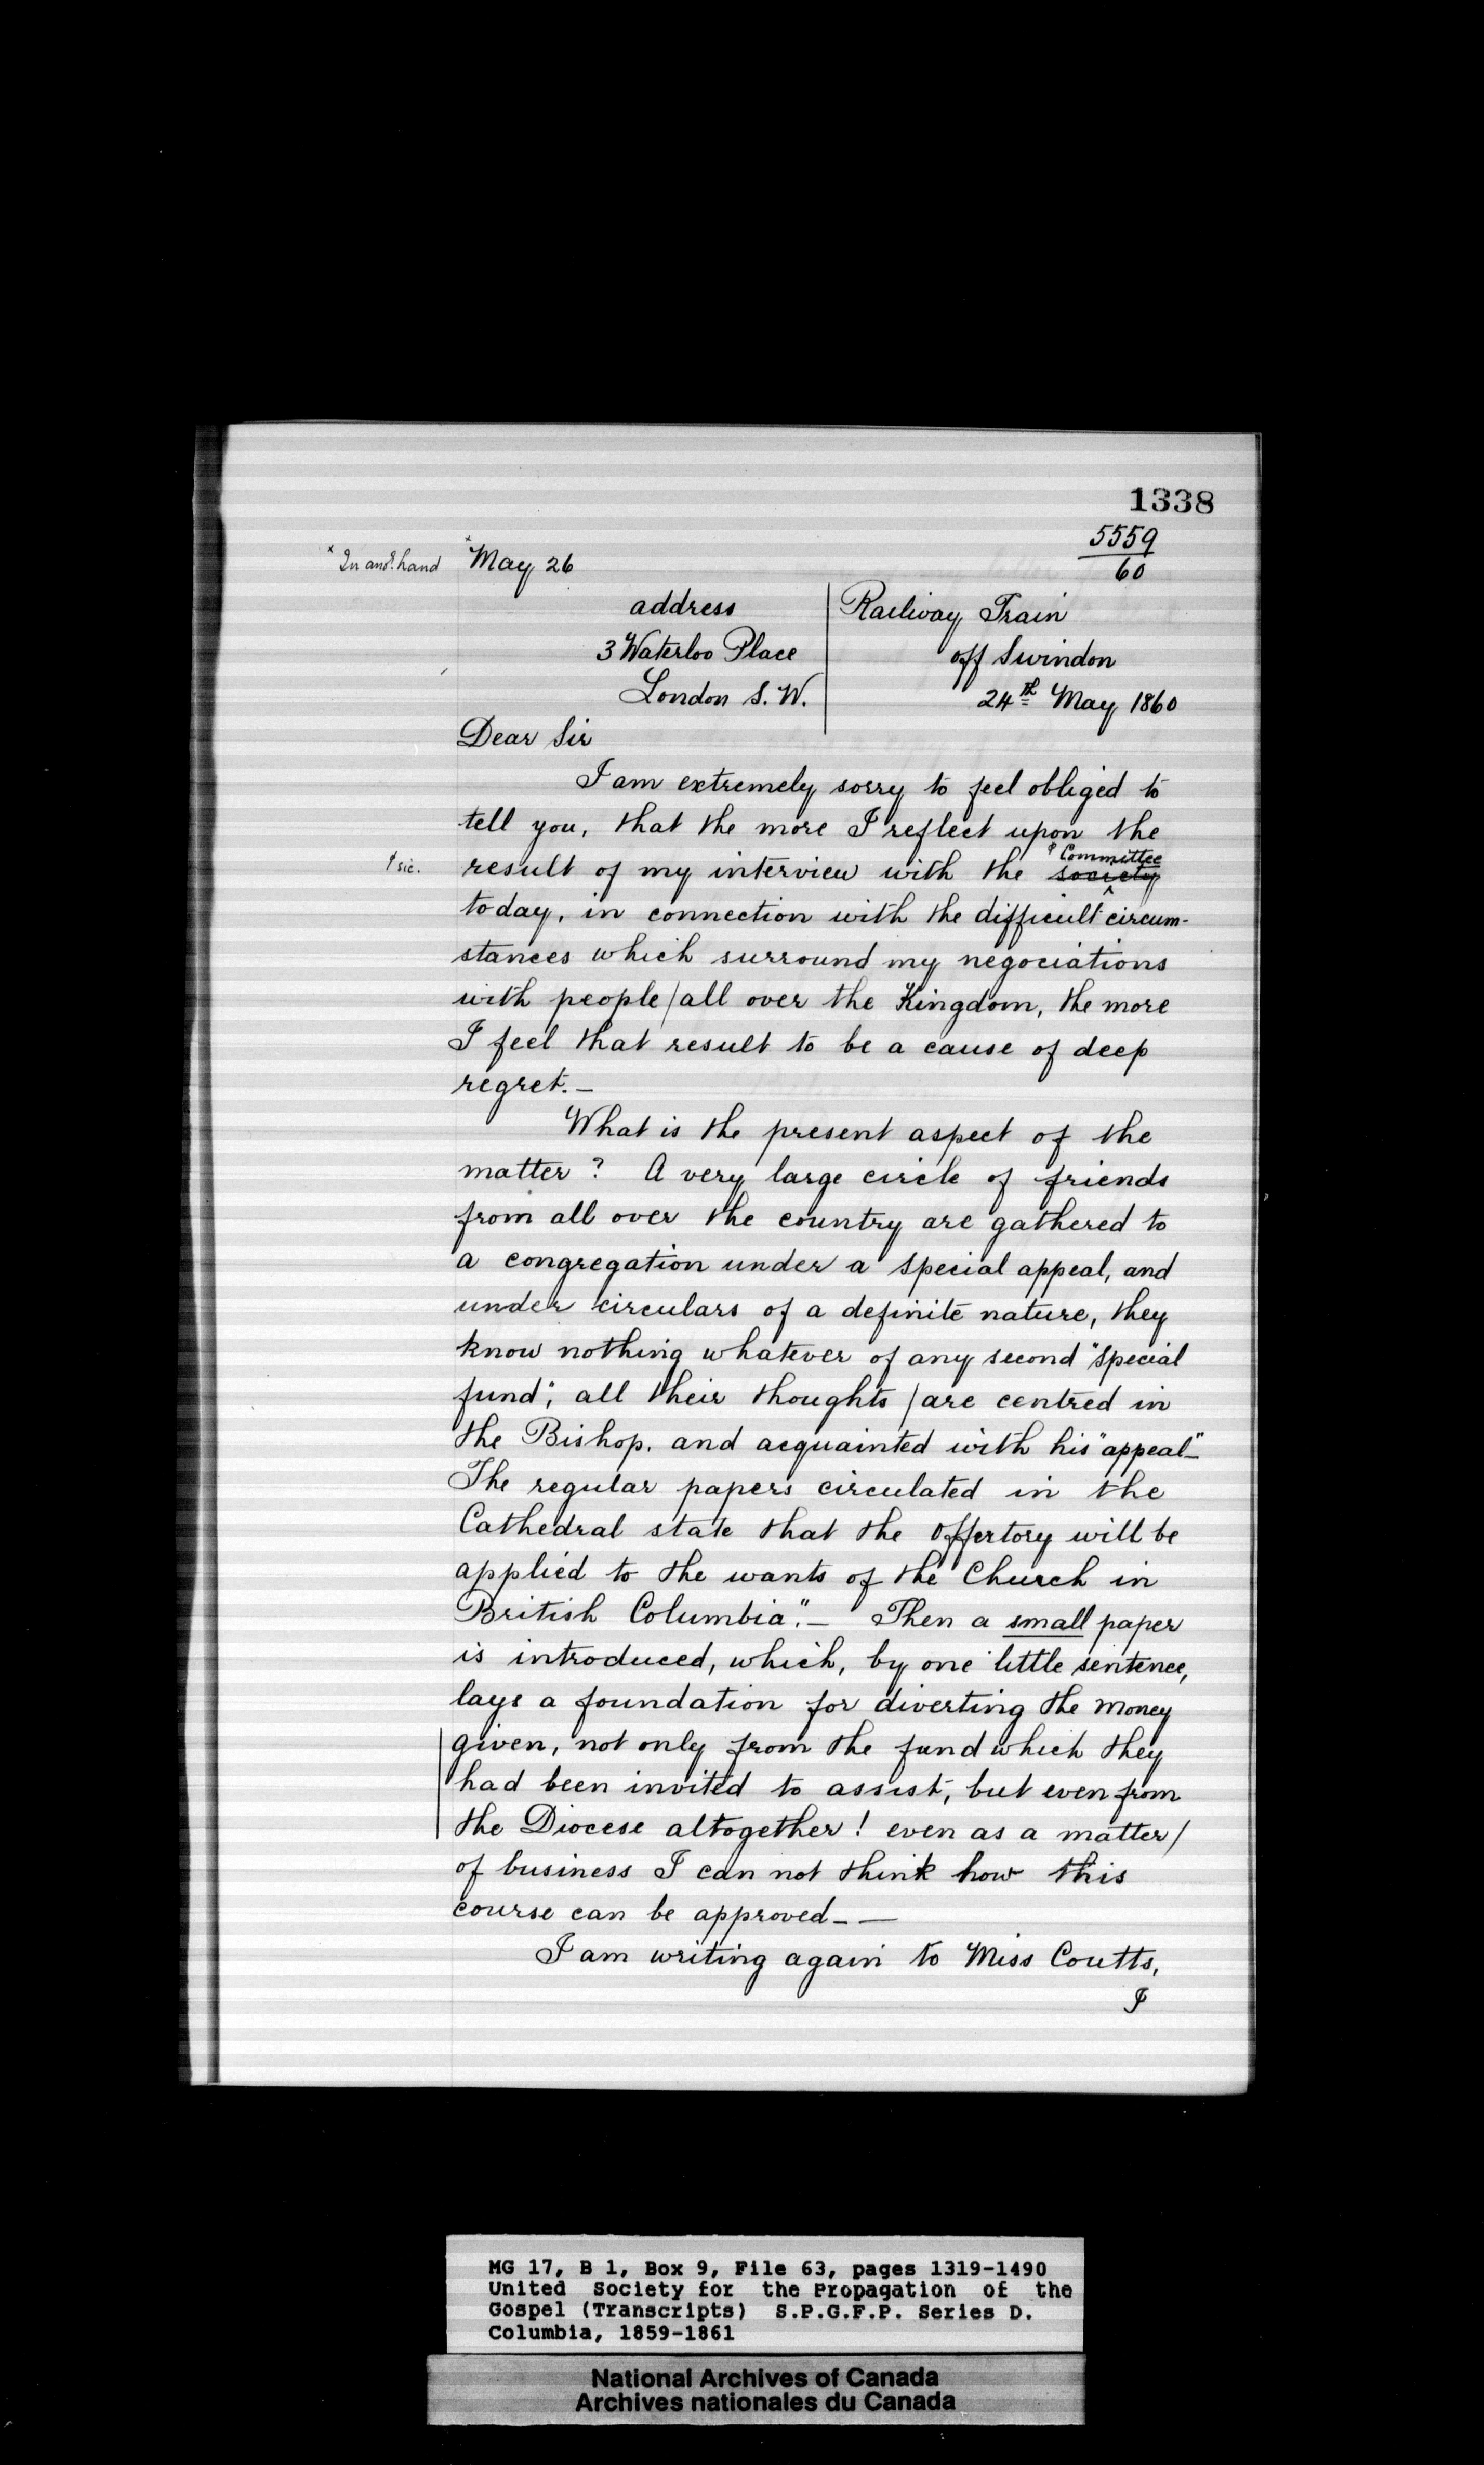 1338
5559
60
× In anoṛ. hand ×May 26
address
3 Waterloo Place
London S. W.
Railway Train
off Swindon
24th May 1860
Dear Sir
I am extremely sorry to feel obliged to
tell you, that the more I reflect upon the
† Committee
† sic. result of my interview with the society
today, in connection with the difficult circum-
stances which surround my negociations
with people / all over the Kingdom, the more
I feel that result to be a cause of deep
regret.—
What is the present aspect of the
matter? A very large circle of friends
from all over the country are gathered to
a congregation under a special appeal, and
under circulars of a definite nature, they
know nothing whatever of any second "special
fund", all their thoughts / are centred in
the Bishop. and acquainted with his "appeal"—
The regular papers circulated in the
Cathedral state that the Offertory will be
applied to the wants of the Church in
British Columbia".— Then a small paper
is introduced, which, by one little sentence,
lays a foundation for diverting the money
given, not only from the fund which they
had been invited to assist, but even from
the Diocese altogether! even as a matter /
of business I can not think how this
course can be approved_ —
I am writing again to Miss Coutts,
I
MG 17, B 1, Box 9, File 63, pages 1319-1490
United Society for the Propagation of the
Gospel (Transcripts) S.P.G.F.P. Series D.
Columbia, 1859-1861
National Archives of Canada
Archives nationales du Canada